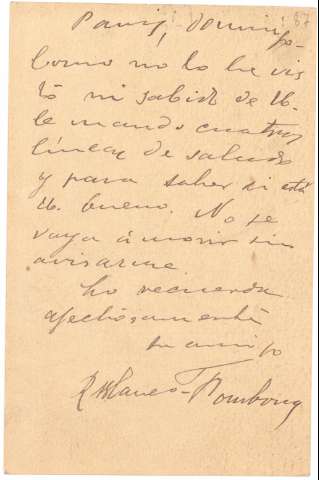 Paris, Domingo
Como no lo he vis
to ni sabido de U.
le mando cuatro
líneas de saludo
y para saber si está
U. bueno. No se
vaya á morir sin
avisarme.
Lo recuerda
afectuosamente
su amigo
R Blanco-Fombona